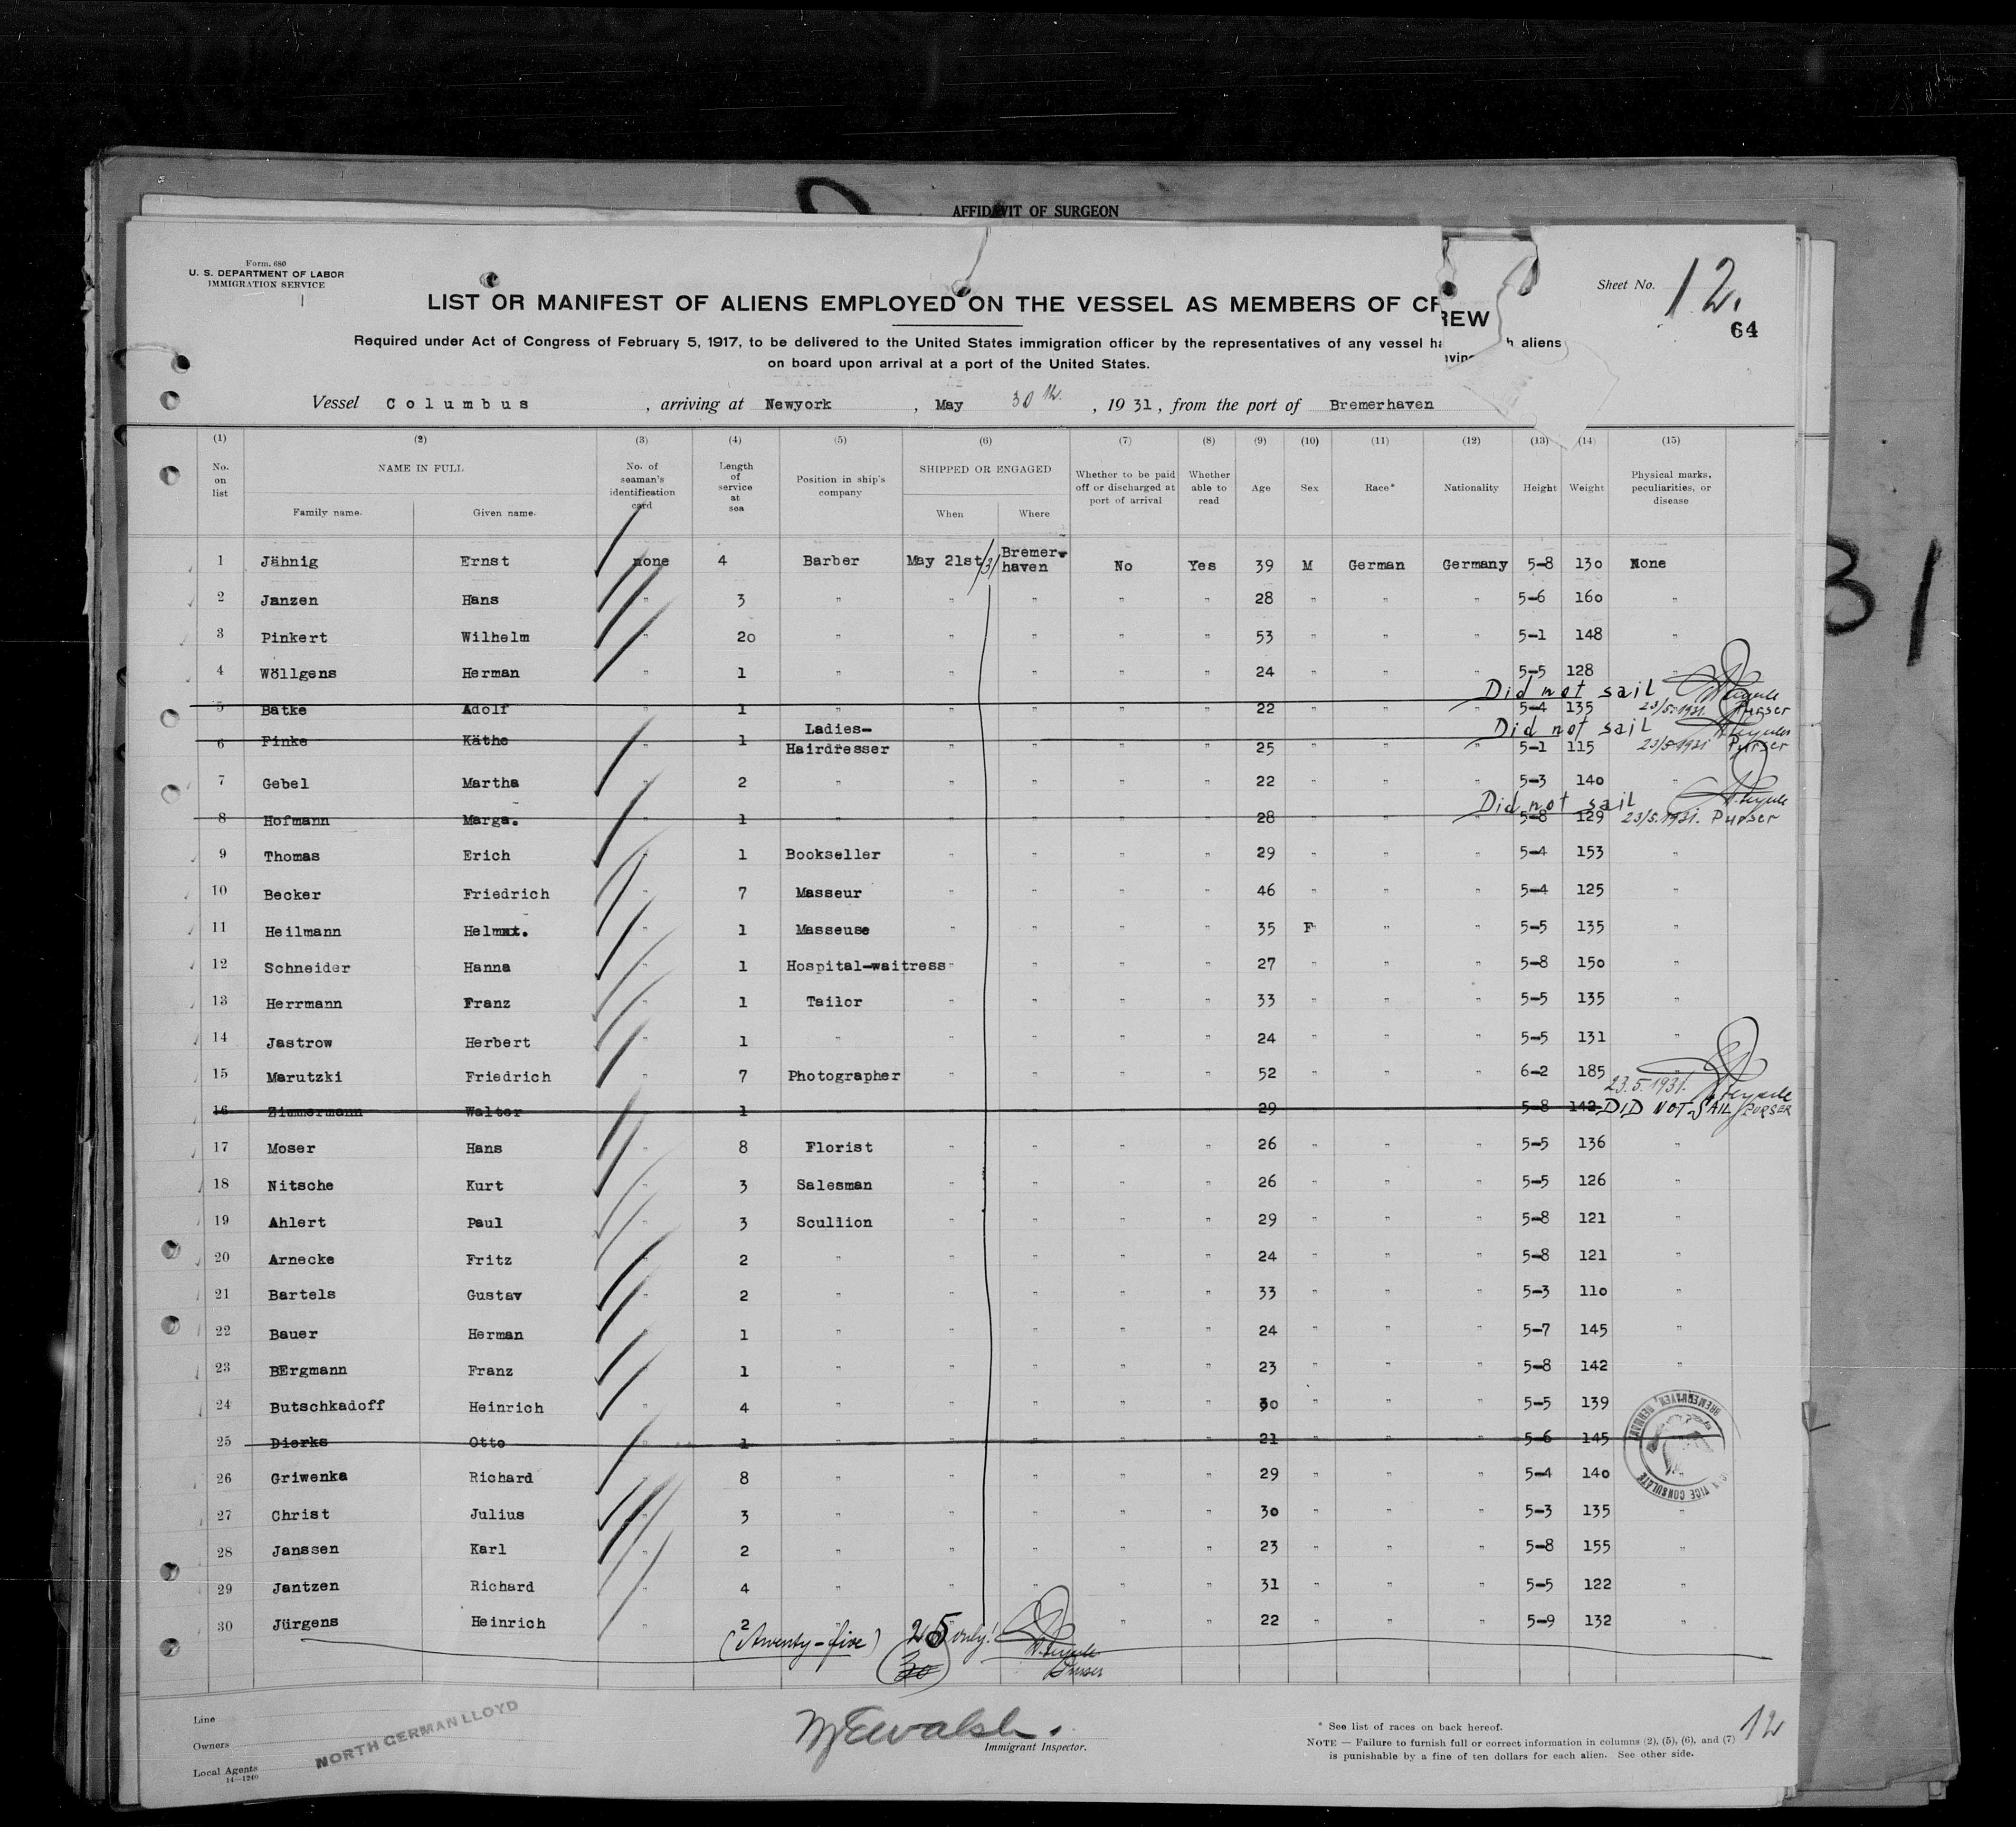 AFFIDAVIT OF SURGEON
Form. 680
U. S. DEPARTMENT OF LABOR
IMMIGRATION SERVICE
Sheet No. 12.
64
LIST OR MANIFEST OF ALIENS EMPLOYED ON THE VESSEL AS MEMBERS OF CREW
Required under Act of Congress of February 5, 1917, to be delivered to the United States immigration officer by the representatives of any vessel having h aliens
on board upon arrival at a port of the United States.
Vessel Columbus , arriving at Newyork , May 30th. , 1931, from the port of Bremerhaven
(1) (2) (3) (4) (5) (6) (7) (8) (9) (10) (11) (12) (13) (14) (15)
No. on list NAME IN FULL Family name. Given name. No. of seaman's identification card Length of service at sea Position in ship's company SHIPPED OR ENGAGED When Where Whether to be paid off or discharged at port of arrival Whether able to read Age Sex Race* Nationality Height Weight Physical marks, peculiarities, or disease
1 Jähnig Ernst none 4 Barber May 21st/31 Bremerhaven No Yes 39 M German Germany 5-8 130 None
2 Janzen Hans " 3 " " " " " 28 " " " 5-6 160 "
3 Pinkert Wilhelm " 20 " " " " " 53 " " " 5-1 148 "
4 Wöllgens Herman " 1 " " " " " 24 " " " 5-5 128 "
Did not sail
5 Batke Adolf " 1 " " " " " 22 " " " 5-4 135 23/5.1931. Purser
Did not sail
6 Finke Käthe " 1 Ladies-Hairdresser " " " " 25 " " " 5-1 115 23/5.1931 Purser
7 Gebel Martha " 2 " " " " " 22 " " " 5-3 140 "
Did not sail
8 Hofmann Marga. " 1 " " " " " 28 " " " 5-8 129 23/5.1931. Purser
9 Thomas Erich " 1 Bookseller " " " " 29 " " " 5-4 153 "
10 Becker Friedrich " 7 Masseur " " " " 46 " " " 5-4 125 "
11 Heilmann " 1 Masseuse " " " " 35 F " " 5-5 135 "
12 Schneider Hanna " 1 Hospital-waitress " " " " 27 " " " 5-8 150 "
13 Herrmann Franz " 1 Tailor " " " " 33 " " " 5-5 135 "
14 Jastrow Herbert " 1 " " " " " 24 " " " 5-5 131 "
15 Marutzki Friedrich " 7 Photographer " " " " 52 " " " 6-2 185 "
23.5.1931.
16 Zimmermann Walter " 1 " " " " " 29 " " " 5-8 142 DID NOT SAIL PURSER
17 Moser Hans " 8 Florist " " " " 26 " " " 5-5 136 "
18 Nitsche Kurt " 3 Salesman " " " " 26 " " " 5-5 126 "
19 Ahlert Paul " 3 Scullion " " " " 29 " " " 5-8 121 "
20 Arnecke Fritz " 2 " " " " " 24 " " " 5-8 121 "
21 Bartels Gustav " 2 " " " " " 33 " " " 5-3 110 "
22 Bauer Herman " 1 " " " " " 24 " " " 5-7 145 "
23 BErgmann Franz " 1 " " " " " 23 " " " 5-8 142 "
24 Butschkadoff Heinrich " 4 " " " " " 30 " " " 5-5 139 "
25 Dierks Otto " 1 " " " " " 21 " " " 5-6 145
26 Griwenka Richard " 8 " " " " " 29 " " " 5-4 140 "
27 Christ Julius " 3 " " " " " 30 " " " 5-3 135 "
28 Janssen Karl " 2 " " " " " 23 " " " 5-8 155 "
29 Jantzen Richard " 4 " " " " " 31 " " " 5-5 122 "
30 Jürgens Heinrich " 2 " " " " " 22 " " " 5-9 132 "
(Twenty-five) 25 only!
(30) Purser
VICE CONSULATE BREMERHAVEN, GERMANY
Line
Owners
Local Agents
14-1240
NORTH GERMAN LLOYD
Immigrant Inspector.
* See list of races on back hereof.
NOTE — Failure to furnish full or correct information in columns (2), (5), (6), and (7)
is punishable by a fine of ten dollars for each alien. See other side.
12
31